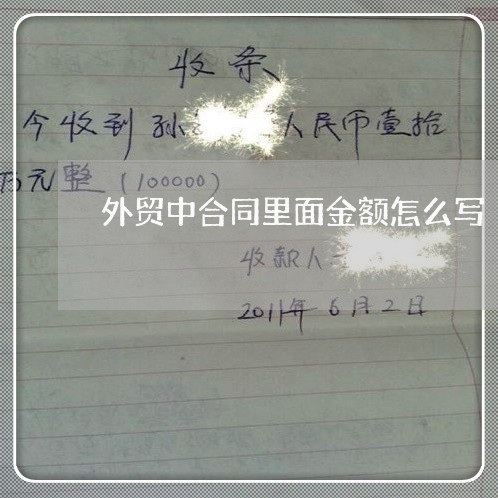 收条
今收到孙 人民币壹拾
万元整(100000)
外贸中合同里面金额怎么写
收款人
2011年6月2日